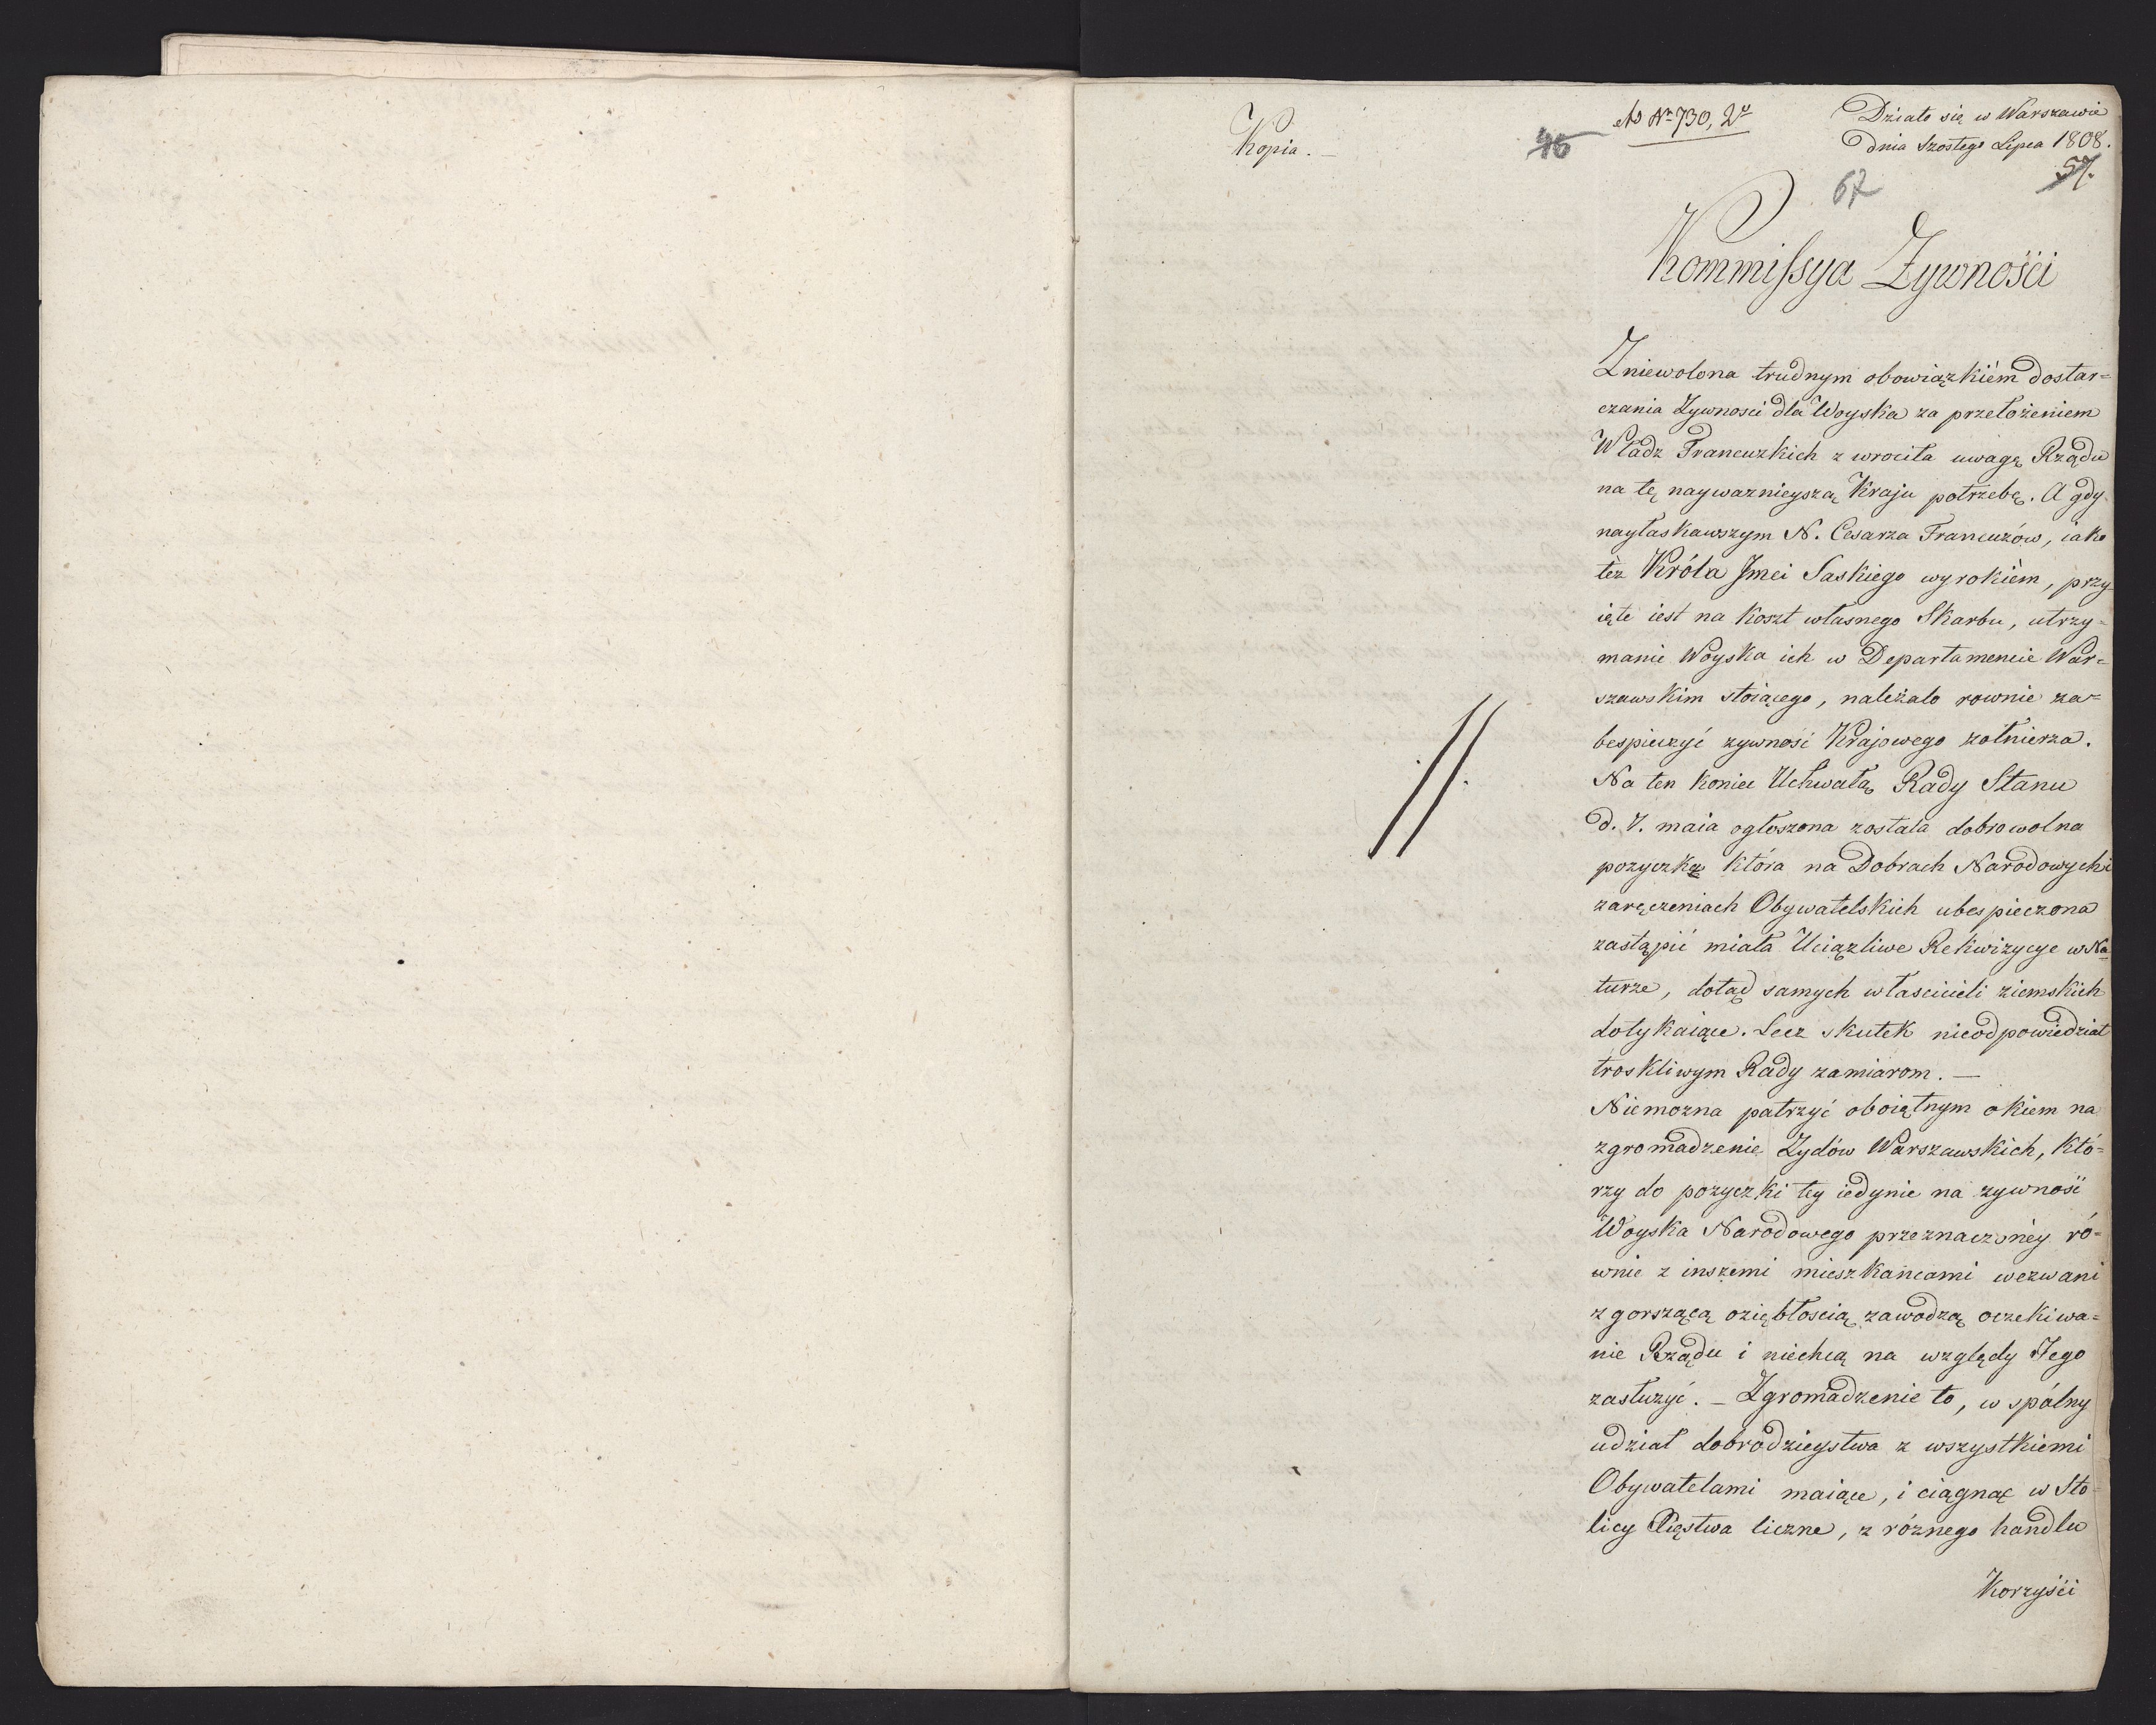 Kopia. –
46
Ad Nr 730, 2o
Działo się w Warszawie
dnia Szostego Lipca 1808.
57.
67
Kommissya Żywnośći
Zniewolona trudnym obowiązkiém dostar=
czania Zywnosci dla Woyska za przełożeniem
Władz Francuzkich zwrociła uwagę Rządu
na tę naywaznieyszą Kraju potrzebę. A gdy
nayłaskawszym N. Cesarza Francuzów, iako
też Króla Jmci Saskiego wyrokiém, przy
ięte iest na Koszt własnego Skarbu, utrzy=
manie Woyska ich w Departamencie War=
szawskim stoiącego, należało rownie za=
bespieczyć zywność Krajowego zołnierza.
Na ten koniec Uchwałą Rady Stanu
d. 7. maia ogłoszona została dobrowolna
pozyczka która na Dobrach Narodowych i
zaręczeniach Obywatelskich ubespieczona
zastąpić miała Uciązliwe Rekwizycye w Na=
turze, dotąd samych własciicieli ziemskich
dotykaiące. Lecz skutek nieodpowiedział
troskliwym Rady zamiarom. —
Niemozna patrzyć oboiętnym okiem na
zgromadzenie Zydów Warszawskich, któ=
rzy do pozyczki tey iedynie na zywność
Woyska Narodowego przeznaczonéy ró=
wnie z inszemi mieszkancami wezwani
z gorszącą oziębłoscią zawodzą oczekiwa=
nie Rządu i niechcą na względy Jego
zasłuzyć. – Zgromadzenie to, wspólny
udział dobrodzieystwa z wszystkiemi
Obywatelami maiące, i ciągnąc w Sto
licy Xięstwa liczne, z róznego handlu
Korzyśći